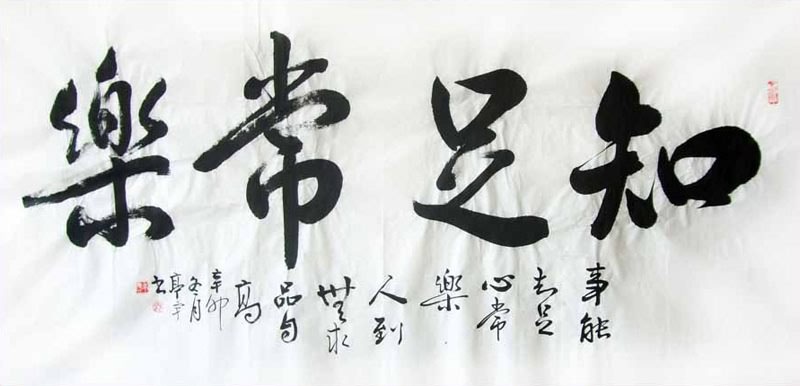 知足常樂
事能
知足
心常
樂
人到
無求
品自
高
辛卯
冬月
书